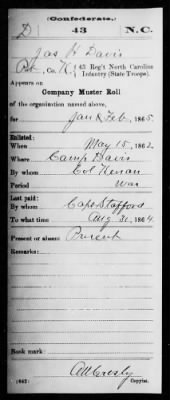 (Confederate.)
D 43 N.C.
Jas H Davis
Pvt, Co. K, 43 Reg't North Carolina
Infantry (State Troops).
Appears on
Company Muster Roll
of the organization named above,
for Jan & Feb, 1865.
Enlisted:
When May 15, 1862.
Where Camp Davis
By whom Col Kenan
Period War
Last paid:
By whom Capt Stafford
To what time Aug 31, 1864
Present or absent Present
Remarks:
Book mark:
(642) Copyist.